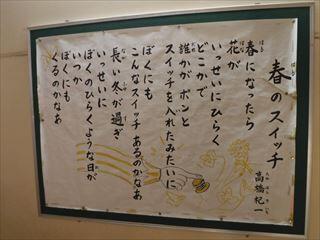 春のスイッチ
高橋杞一
春になったら
花が
いっせいにひらく
どこかで
誰かがポンと
スイッチを入れたみたいに
ぼくにも
こんなスイッチあるのかなあ
長い冬が過ぎ
いっせいに
ぼくのひらくような日が
いつか
ぼくにも
くるのかなあ